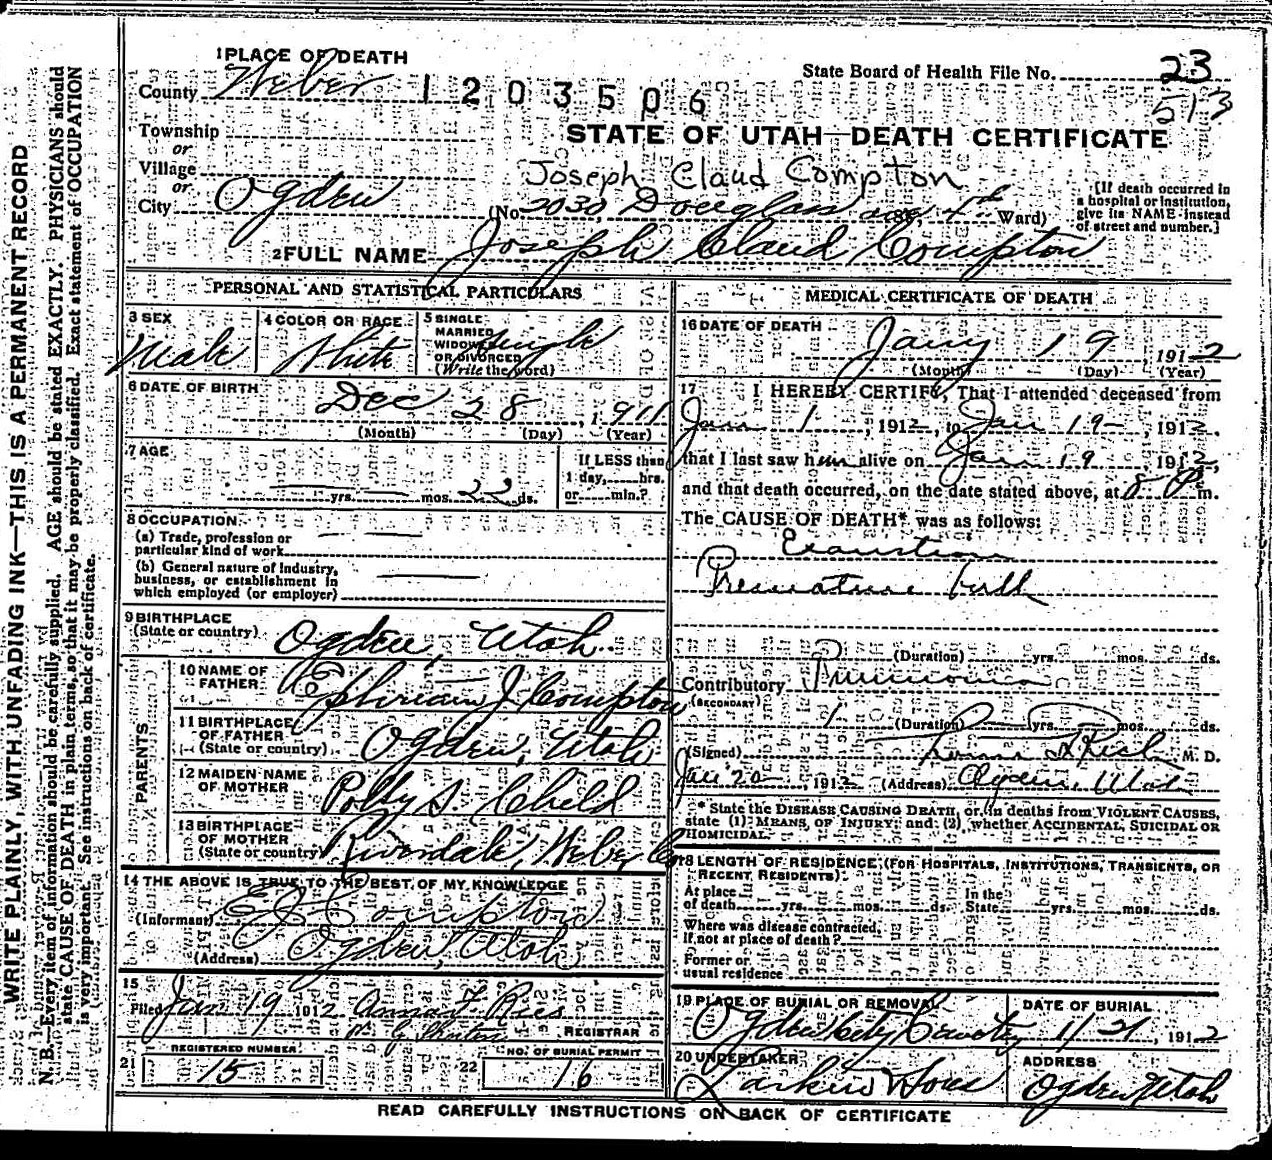 WRITE PLAINLY, WITH UNFADING INK—THIS IS A PERMANENT RECORD
N. B.—Every item of information should be carefully supplied. AGE should be stated EXACTLY. PHYSICIANS should
state CAUSE OF DEATH in plain terms, so that it may be properly classified. Exact statement of OCCUPATION
is very important. See instructions on back of certificate.
1 PLACE OF DEATH
County Weber
1203506
State Board of Health File No. 23
513
Township
or
Village
or
City Ogden
STATE OF UTAH—DEATH CERTIFICATE
Joseph Claud Compton
(No. 2030 Douglas ave 4th Ward)
[If death occurred in
a hospital or institution,
give its NAME instead
of street and number.]
2 FULL NAME Joseph Claud Compton
PERSONAL AND STATISTICAL PARTICULARS
3 SEX
Male
4 COLOR OR RACE
White
5 SINGLE
MARRIED
WIDOWED
OR DIVORCED
(Write the word)
Single
6 DATE OF BIRTH
Dec 28, 1911
(Month) (Day) (Year)
7 AGE
yrs. mos. 22 ds.
If LESS than
1 day, hrs.
or min.?
8 OCCUPATION
(a) Trade, profession or
particular kind of work
(b) General nature of Industry,
business, or establishment in
which employed (or employer)
9 BIRTHPLACE
(State or country) Ogden, Utah
PARENTS
10 NAME OF
FATHER Ephriam J Compton
11 BIRTHPLACE
OF FATHER
(State or country) Ogden, Utah
12 MAIDEN NAME
OF MOTHER Polly S. Child
13 BIRTHPLACE
OF MOTHER
(State or country) Riverdale, Weber Co
14 THE ABOVE IS TRUE TO THE BEST OF MY KNOWLEDGE
(Informant) E J Compton
(Address) Ogden, Utah
15
Filed Jan 19 1912 Anna F. Ries
REGISTRAR
21 REGISTERED NUMBER
15
22 NO. OF BURIAL PERMIT
16
MEDICAL CERTIFICATE OF DEATH
16 DATE OF DEATH
Jany 19, 1912
(Month) (Day) (Year)
17 I HEREBY CERTIFY, That I attended deceased from
Jan 1, 1912, to Jan 19, 1912,
that I last saw him alive on Jan 19 1912,
and that death occurred, on the date stated above, at 8 P m.
The CAUSE OF DEATH* was as follows:
Exaustion
Premature birth
(Duration) yrs. mos. ds.
Contributory Pneumonia
(SECONDARY)
(Duration) yrs. mos. ds.
(Signed) Rich M. D.
Jan 20, 1912 (Address) Ogden, Utah
* State the DISEASE CAUSING DEATH, or, in deaths from VIOLENT CAUSES,
state (1) MEANS OF INJURY; and (2) whether ACCIDENTAL, SUICIDAL OR
HOMICIDAL.
18 LENGTH OF RESIDENCE (FOR HOSPITALS, INSTITUTIONS, TRANSIENTS, OR
RECENT RESIDENTS).
At place
of death yrs. mos. ds.
In the
State yrs. mos. ds.
Where was disease contracted,
If not at place of death?
Former or
usual residence
19 PLACE OF BURIAL OR REMOVAL
Ogden City Cemetery
DATE OF BURIAL
1/21, 1912
20 UNDERTAKER
Larkin & Sons
ADDRESS
Ogden Utah
READ CAREFULLY INSTRUCTIONS ON BACK OF CERTIFICATE